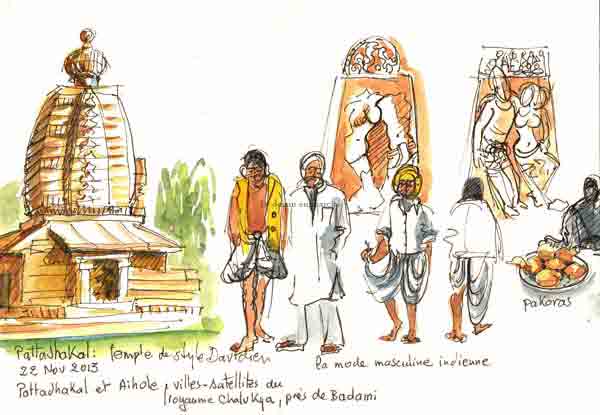 pakoras
Pattadhakal: temple de style Davidien
la mode masculine indienne
22 Nov 2013
Pattadhakal et Aihole, villes-satellites du
royaume Chalukya, près de Badami